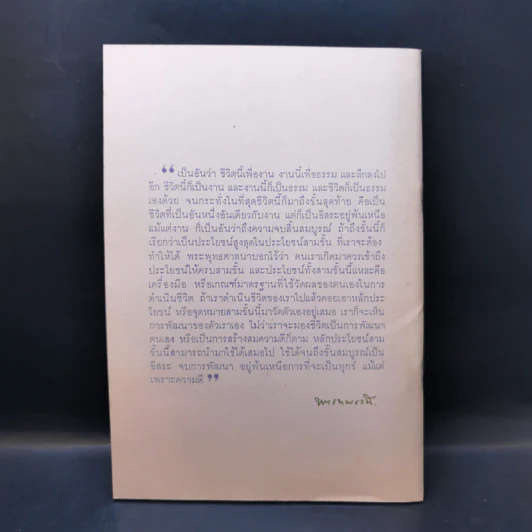 “ เป็นอันว่า ชีวิตนี้เพื่องาน งานนี้เพื่อธรรม และลึกลงไป
อีก ชีวิตนี้ก็เป็นงาน และงานนี้ก็เป็นธรรม และชีวิตก็เป็นธรรม
เองด้วย จนกระทั่งในที่สุดชีวิตนี้ก็มาถึงขั้นสุดท้าย คือเป็น
ชีวิตที่เป็นอันหนึ่งอันเดียวกับงาน แต่ก็เป็นอิสระอยู่พ้นเหนือ
แม้แต่งาน ก็เป็นอันว่าถึงความจบสิ้นสมบูรณ์ ถ้าถึงขั้นนี้ก็
เรียกว่าเป็นประโยชน์สูงสุดในประโยชน์สามขั้น ที่เราจะต้อง
ทำให้ได้ พระพุทธศาสนาบอกไว้ว่า คนเราเกิดมาควรเข้าถึง
ประโยชน์ให้ครบสามขั้น และประโยชน์ทั้งสามขั้นนี้แหละคือ
เครื่องมือ หรือเกณฑ์มาตรฐานที่ใช้วัดผลของตนเองในการ
ดำเนินชีวิต ถ้าเราดำเนินชีวิตของเราไปแล้วคอยเอาหลักประ
โยชน์ หรือจุดหมายสามขั้นนี้มาวัดตัวเองอยู่เสมอ เราก็จะเห็น
การพัฒนาของตัวเราเอง ไม่ว่าเราจะมองชีวิตเป็นการพัฒนา
ตนเอง หรือเป็นการสร้างสมความดีก็ตาม หลักประโยชน์สาม
ขั้นนี้สามารถนำมาใช้ได้เสมอไป ใช้ได้จนถึงขั้นสมบูรณ์เป็น
อิสระ จบการพัฒนา อยู่พ้นเหนือการที่จะเป็นทุกข์ แม้แต่
เพราะความดี ”